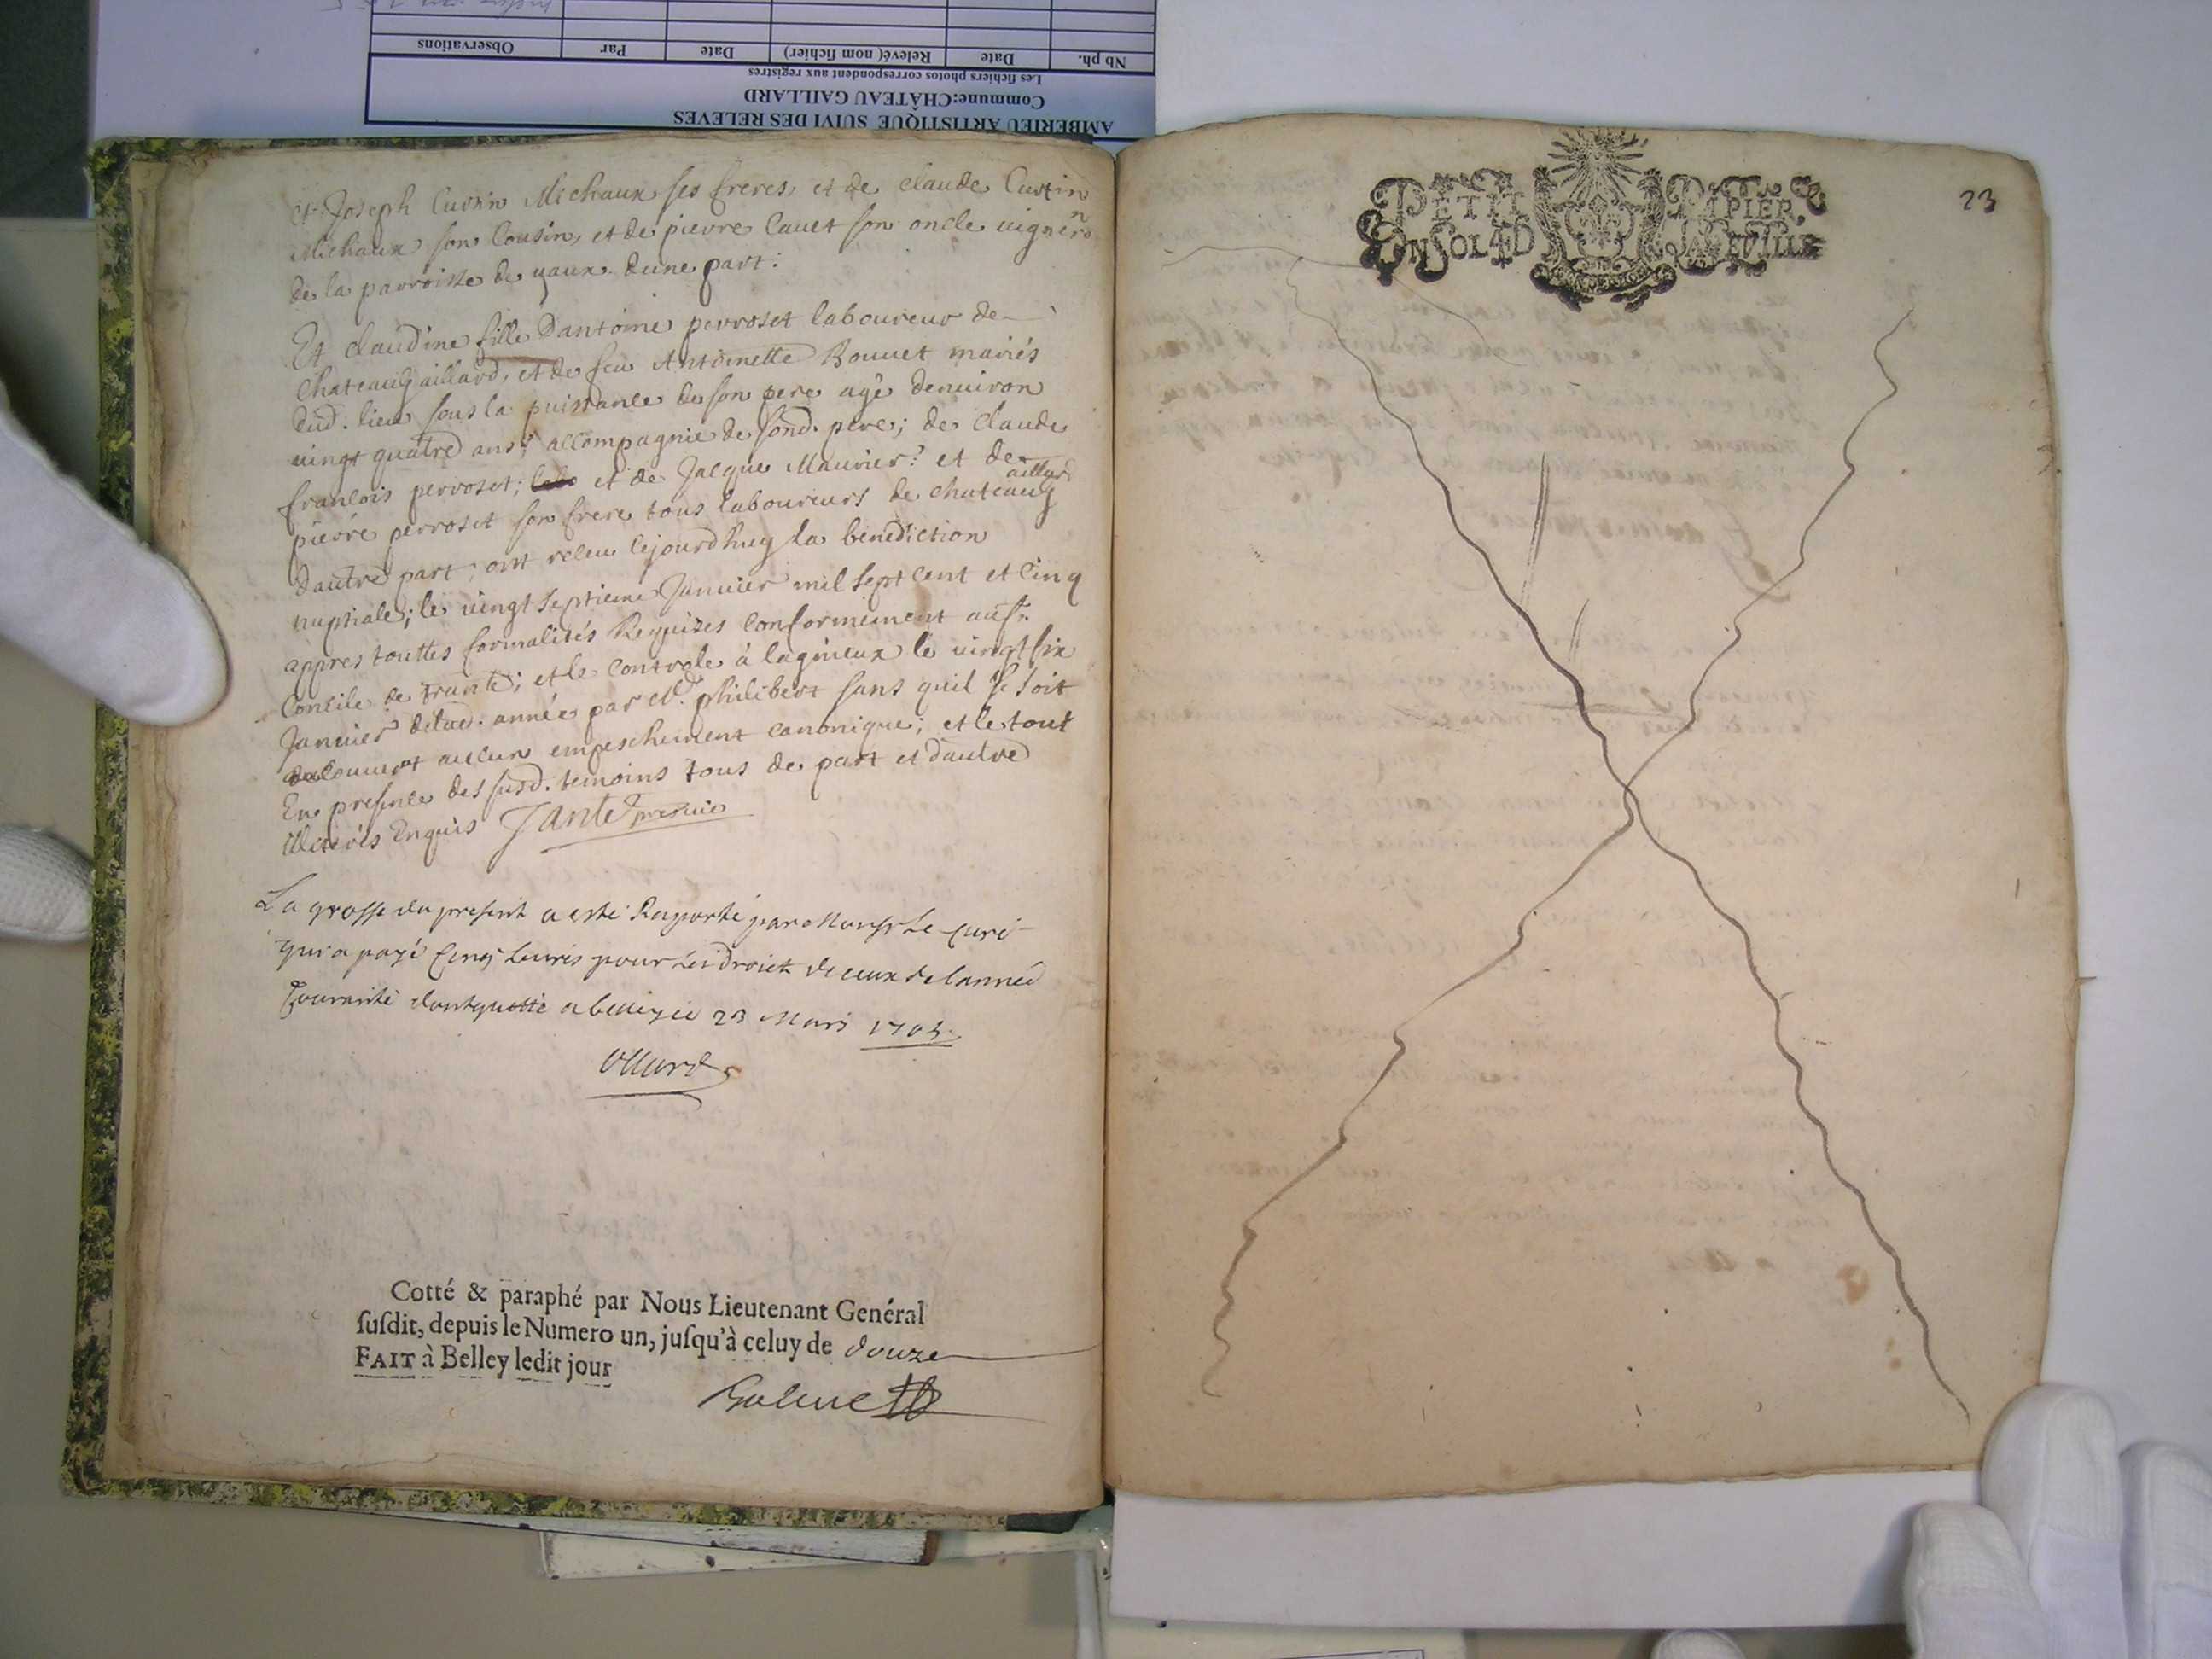 AMBERIEU ARTISTIQUE SUIVI DES RELEVES
Commune:CHÂTEAU GAILLARD
Les fichiers photos correspondent aux registres
Nb ph. Date Relevé( nom fichier) Date Par Observations
et Joseph Curtin Michaux ses freres, et de claude Curtin
Michaux son Cousin, et de pierre Cauet son oncle uigneron
de la parroisse de uaux deune part:
Et claudine fille Dantoine perroset laboureur de
Chateaugaillard, et de feu Antoinette Bouuet mariés
dud. lieu sous la puissance de son pere agé denuiron
uingt quatre ans; accompagnie de sond. pere; de Claude
francois perroset; et de Jacque Maurier? et de
pierre perroset son frere tous laboureurs de chateaugaillard
dautre part; ont receu cejourdhuy la benediction
nuptiale; le uingt septieme Januier mil sept cent et cinq
appres touttes formalités Requises conformement au st.
Concile de trante; et le controle à lagnieux le uingt six
Januier ditte. année par Mr. philibert sans quil se soit
decouuert aucun empeschement canonique; et le tout
En presence des susd. temoins tous de part et dautre
illeterés Enquis Jantet
La grosse du present a esté Raporté par Monsr Le Curé
qui a payé Cinq Liures pour Les Droict de ceux de lannée
Courante dont quotté a belley ce 23 Mars 1705
Cotté & paraphé par Nous Lieutenant Genéral
susdit, depuis le Numero un, jusqu'à celuy de douze
FAIT à Belley ledit jour
23
PETIT PAPIER